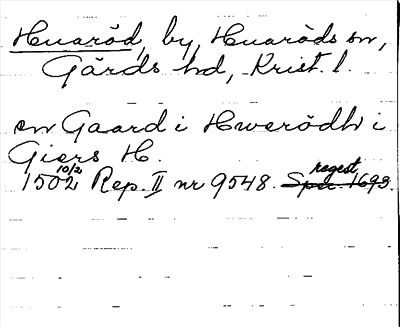 Huaröd, by, Huaröds sn,
Gärds hd, Krist. l.
en Gaard i Hwerödh i
Giers H.
1502 10/2 Rep. II nr 9548. regest 1693.